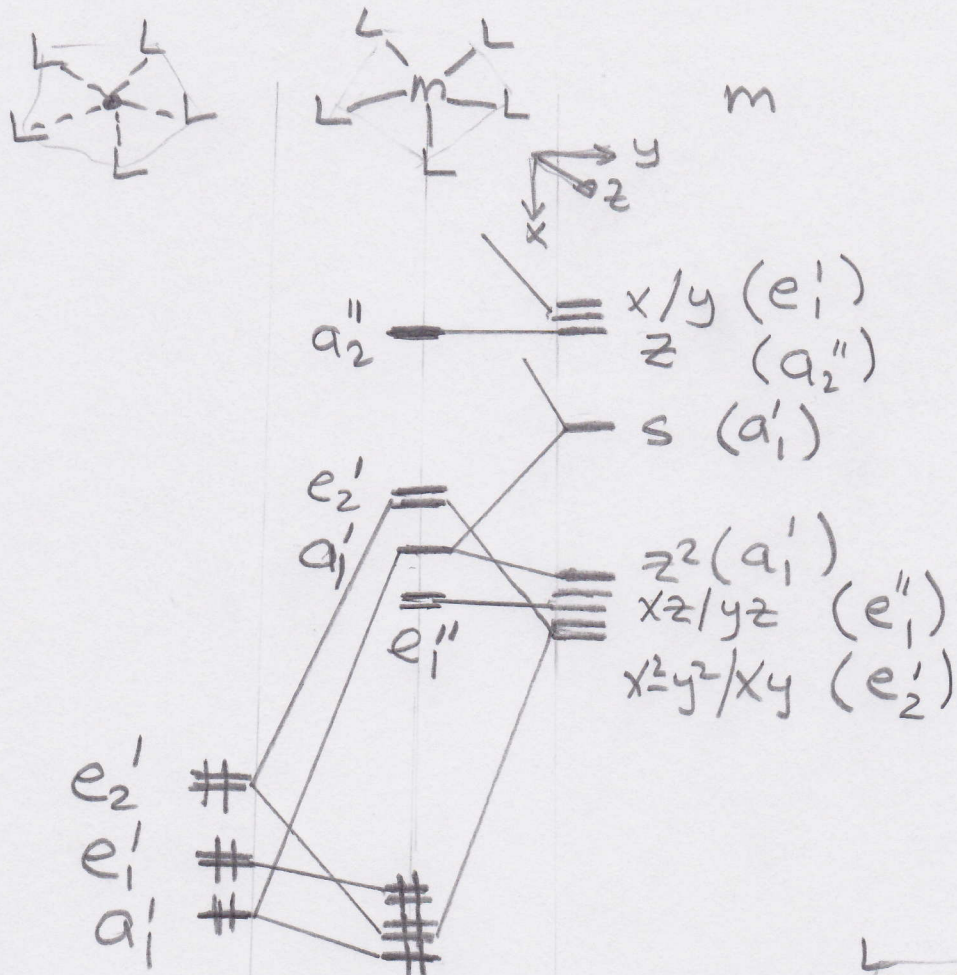 L L L L L
L L L L L m
m
x y z
x/y (e₁')
a₂'' z (a₂'')
s (a₁')
e₂'
a₁' z² (a₁')
e₁'' xz/yz (e₁'')
x²-y²/xy (e₂')
e₂'
e₁'
a₁'
L